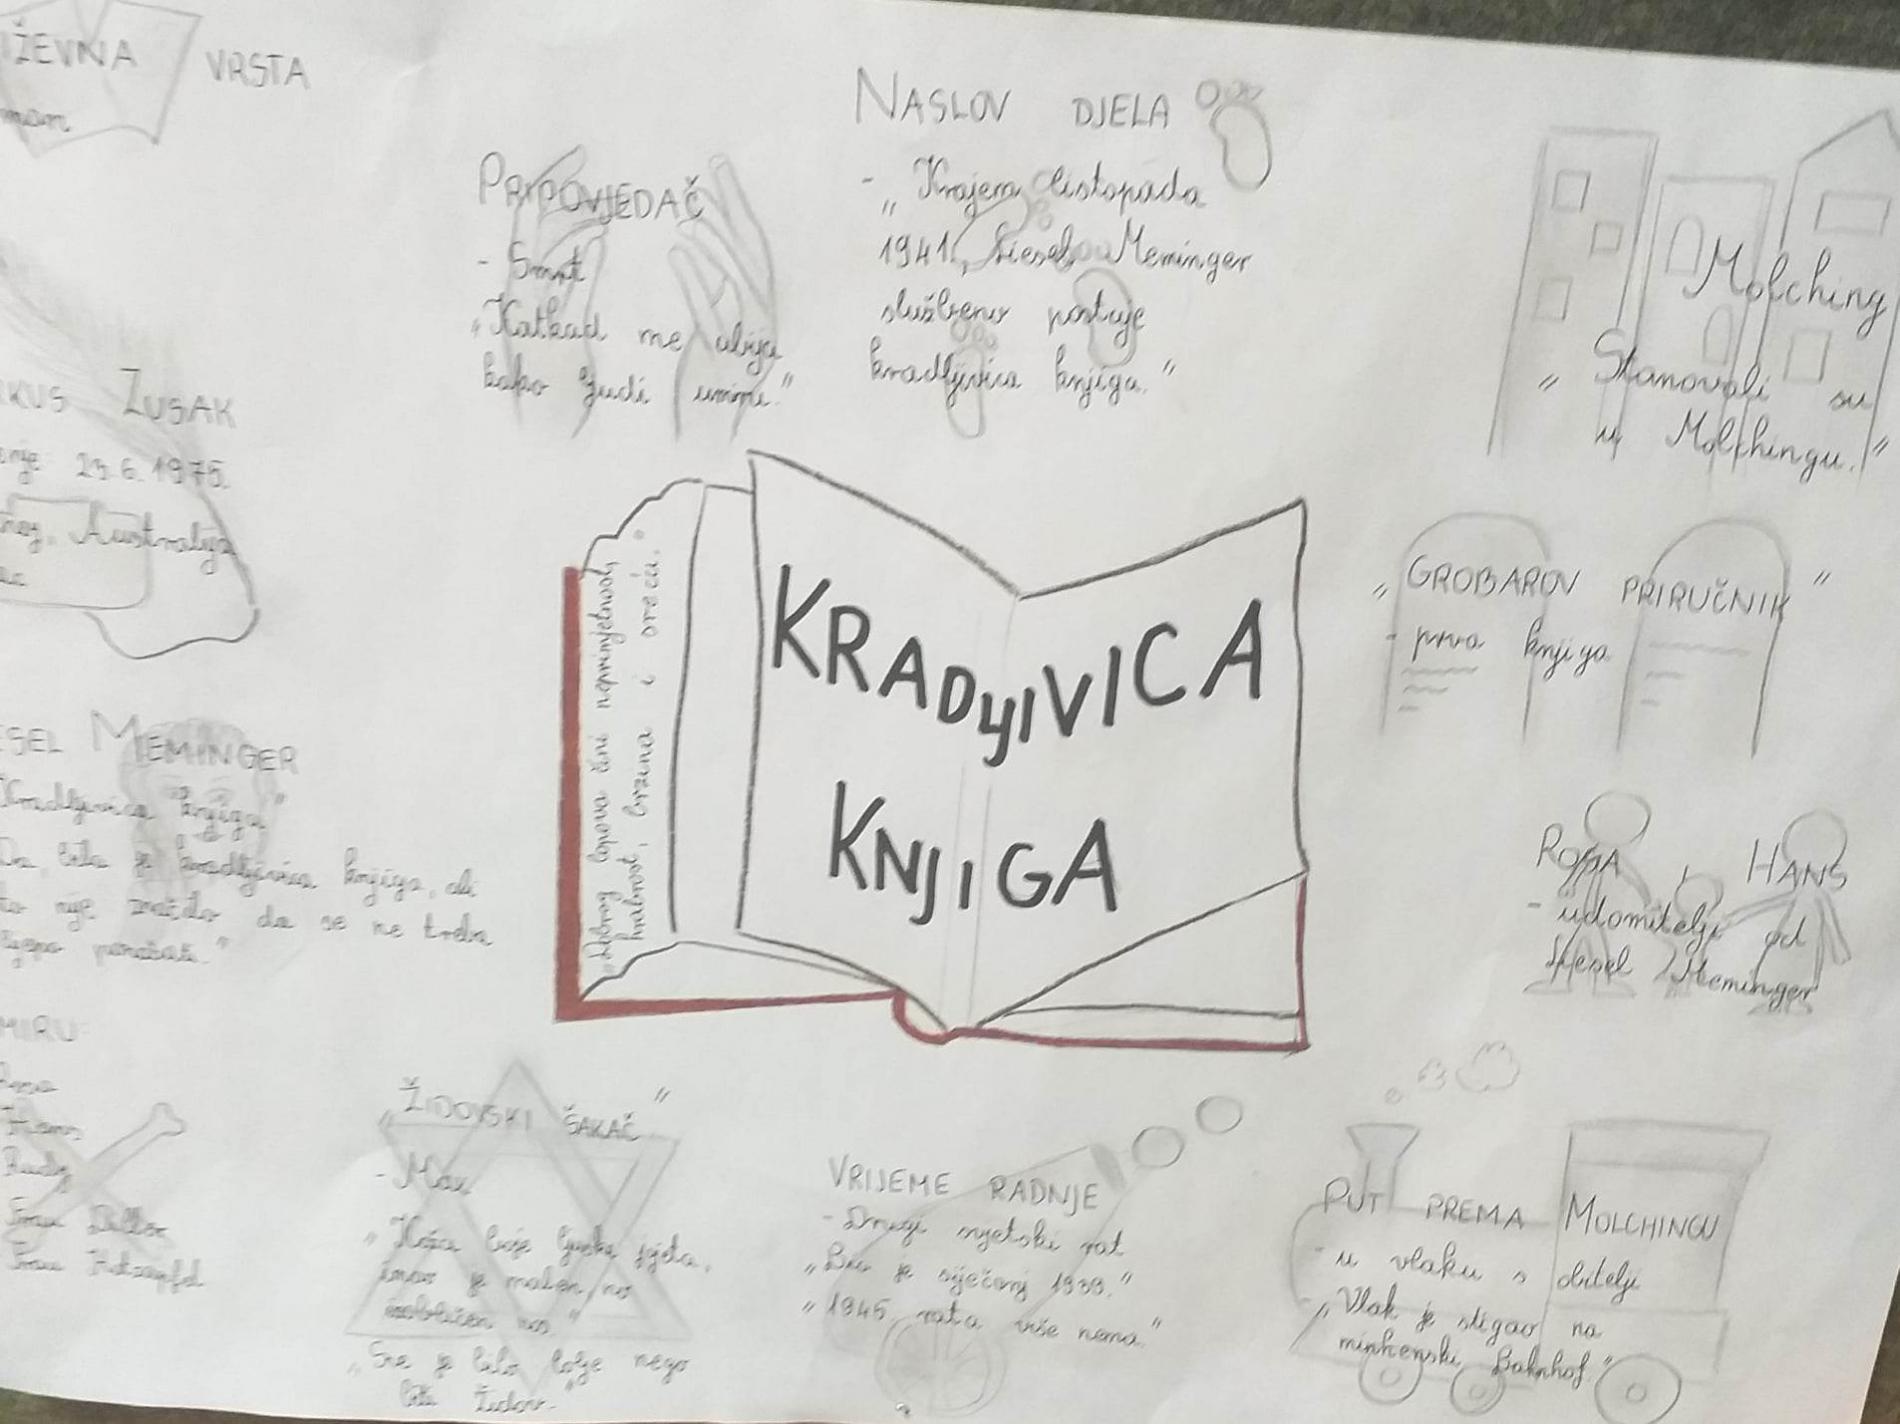 IŽEVNA VRSTA
man
PRIPOVJEDAČ
- Smrt
"Katkad me ubija
kako ljudi umiru."
NASLOV DJELA
- "Krajem listopada
1941., Liesel Meminger
službeno postaje
kradljivica knjiga."
Molching
"Stanovali su
u Molchingu."
KUS ZUSAK
enje: 23.6.1975.
Australija
"GROBAROV PRIRUČNIK"
- prva knjiga
"Dobrog lopova čini neprimjetnost,
hrabrost, brzina i sreća."
KRADLJIVICA
KNJIGA
ESEL MEMINGER
Kradljivica knjiga"
Da, bila je kradljivica knjiga, ali
to nije značilo da se ne treba
lijepo ponašati."
ROSA HANS
- udomitelji od
Liesel Meminger
MIRU:
Hans
Rudy
Frau Diller
Frau Holtzapfel
"ŽIDOVSKI ŠAKAČ"
- Max
"Koža boje ljuske jajeta,
imao je malen, no
nos"
"Sve je bilo bolje nego
biti Židov."
VRIJEME RADNJE
- Drugi svjetski rat
"Bio je siječanj 1939."
"1945. rata više nema."
PUT PREMA MOLCHINGU
- u vlaku s obitelji
"Vlak je stigao na
minhenski Bahnhof."